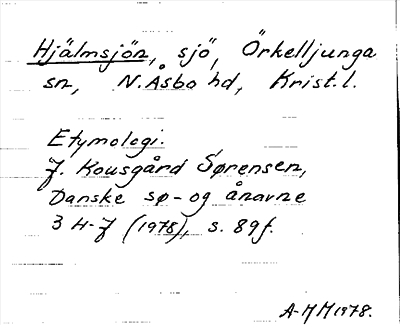 Hjälmsjön, sjö, Örkelljunga
sn, N. Åsbo hd, Krist. l.
Etymologi.
J. Kousgård Sørensen,
Danske sø- og ånavne
3 H-J (1978), s. 89f.
A-MM 1978.